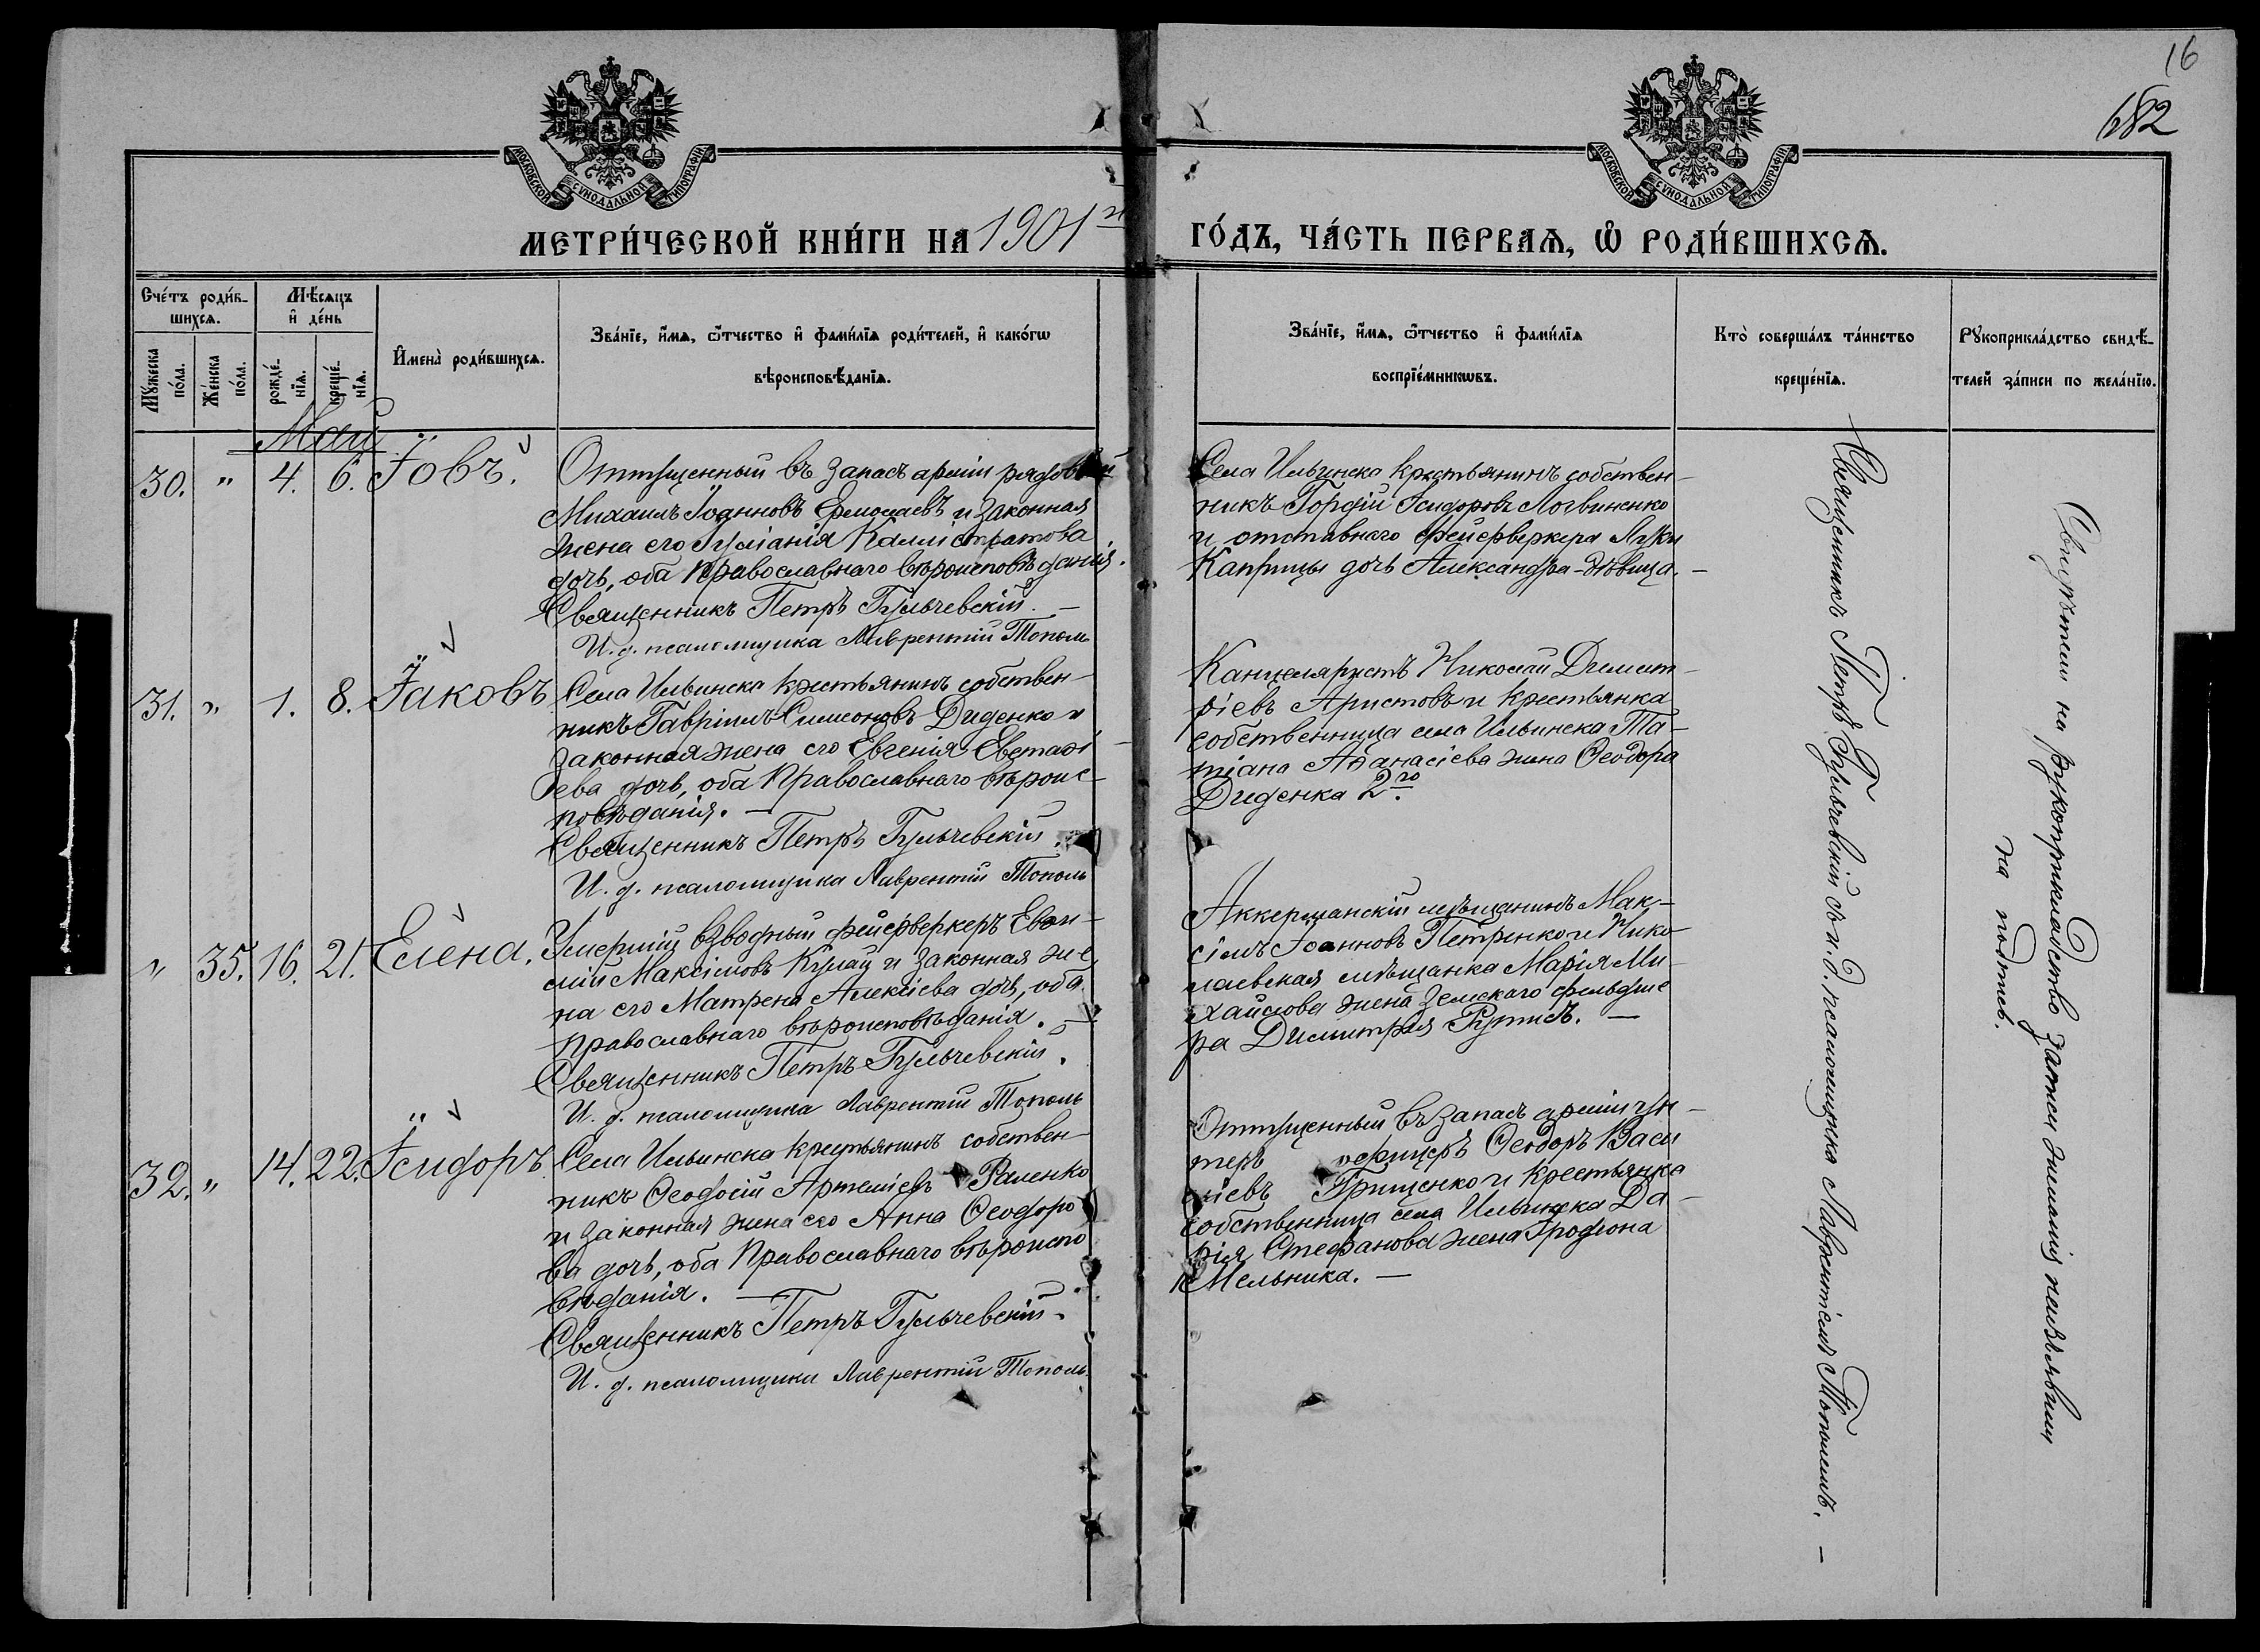 16
682
МОСКОВСКОЙ СѴНОДАЛЬНОЙ ТИПОГРАФІИ
МОСКОВСКОЙ СѴНОДАЛЬНОЙ ТИПОГРАФІИ
МЕТРИ́ЧЕСКОЙ КНИ́ГИ НА 1901й
ГО́ДЪ, ЧА́СТЬ ПЕРВАѦ, Ѡ҆ РОДИ́ВШИХСѦ.
Сче́тъ роди́в-
шихсѧ.
Мѹ́жеска
по́ла.
Же́нска
по́ла.
Мѣ́сѧцъ
и҆ де́нь
рожде́-
нїѧ.
креще́-
нїѧ.
И҆мена̀ роди́вшихсѧ.
Зва́нїе, и҆́мѧ, ѻ҆́тчество и҆ фами́лїѧ роди́телей, и҆ како́гѡ
вѣроисповѣ́данїѧ.
Зва́нїе, и҆́мѧ, ѻ҆́тчество и҆ фами́лїѧ
воспрїе́мникѡвъ.
Кто̀ соверша́лъ та́инство
креще́нїѧ.
Рѹкоприкла́дство свидѣ́-
телей за́писи по жела́нїю.
Май
30. " 4. 6. Іовъ.
Отпущенный въ запасъ арміи рядовый
Михаилъ Іоанновъ Ермолаевъ и законная
жена его Іуліанія Каллистратова
дочь, оба Православнаго вѣроисповѣданія.
Священникъ Петръ Гульчевскій. —
И. д. псаломщика Лаврентій Тополь
Села Ильинска крестьянинъ собствен-
никъ Гордій Исидоровъ Логвиненко
и отставнаго фейерверкера Луки
Каприцы дочь Александра - дѣвица. —
31. " 1. 8. Іаковъ
Села Ильинска крестьянинъ собствен-
никъ Гавріилъ Симеоновъ Диденко и
законная жена его Евгенія Евстафі-
ева дочь, оба Православнаго вѣроис-
повѣданія. —
Священникъ Петръ Гульчевскій.
И. д. псаломщика Лаврентій Тополь
Канцеляристъ Николай Димит-
ріевъ Аристовъ и крестьянка
собственница села Ильинска Та-
тіана Аѳанасіева жена Ѳеодора
Диденка 2го.
" 35. 16. 21. Елена.
Умершій взводный фейерверкеръ Евѳи-
мій Максимовъ Кулай и законная же
на его Матрена Алексіева дочь, оба
Православнаго вѣроисповѣданія. —
Священникъ Петръ Гульчевскій.
И. д. псаломщика Лаврентій Тополь
Аккерманскій мѣщанинъ Мак-
симъ Іоанновъ Петренко и Нико-
лаевская мѣщанка Марія Ми-
хайлова жена земскаго фельдше
ра Димитрія —
32. " 14. 22. Ісидоръ
Села Ильинска крестьянинъ собствен-
никъ Ѳеодосій Артеміевъ Раленко
и законная жена его Анна Ѳеодоро
ва дочь, оба Православнаго вѣроиспо
вѣданія. —
Священникъ Петръ Гульчевскій.
И. д. псаломщика Лаврентій Тополь.
Отпущенный въ запасъ арміи ун-
теръ офицеръ Ѳеодоръ Васи
ліевъ Грищенко и крестьянка
собственница села Ильинска Да-
рія Стефанова жена Иродіона
Мельника. —
Священникъ Петръ Гульчевскій съ и. д. псаломщика Лаврентіемъ Тополемъ. —
Свидѣтели на рукоприкладство записи желанія не изъявили